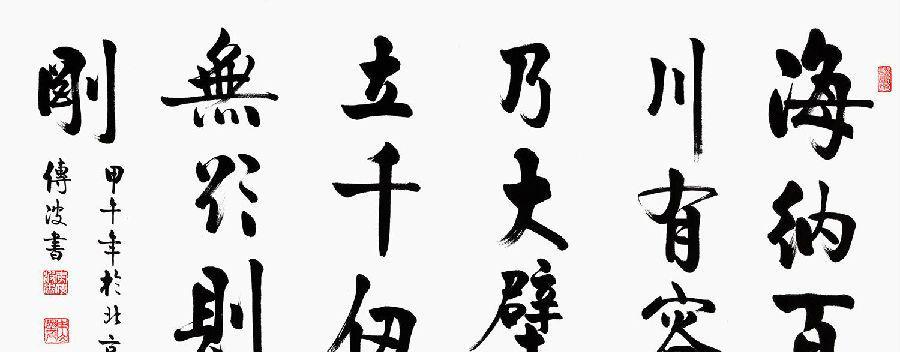 海納百
川有容
乃大壁
立千仞
無欲則
剛
甲午年於北京
傳波書